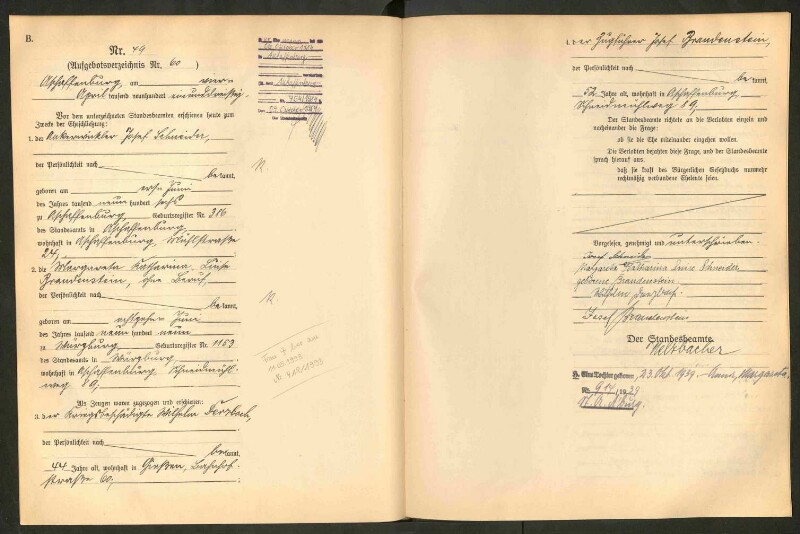 B.
Nr. 49
(Aufgebotsverzeichnis Nr. 60 )
Aschaffenburg, am vier-
April tausend neunhundert einunddreissig.
Vor dem unterzeichneten Standesbeamten erschienen heute zum
Zwecke der Eheschließung:
1. der Josef Schneider,
der Persönlichkeit nach
bekannt,
geboren am ersten Juni
des Jahres tausend neun hundert sechs
zu Aschaffenburg, Geburtsregister Nr. 316
des Standesamts in Aschaffenburg,
wohnhaft in Aschaffenburg, Mühlstraße
24.
2. die Margareta Katharina Luise
Brandenstein, ohne Beruf,
der Persönlichkeit nach
bekannt,
geboren am Juni
des Jahres tausend neun hundert neun
zu Würzburg, Geburtsregister Nr. 1153
des Standesamts in Würzburg,
wohnhaft in Aschaffenburg, Schneidmühl-
weg 89;
Als Zeugen waren zugezogen und erschienen:
3. der Kriegsbeschädigte Wilhelm
der Persönlichkeit nach
bekannt,
44 Jahre alt, wohnhaft in Gießen, Bahnhof-
straße 60;
Aschaffenburg
N.
N.
4. der Zugführer Josef Brandenstein,
der Persönlichkeit nach
bekannt,
52 Jahre alt, wohnhaft in Aschaffenburg,
Schneidmühlweg 89;
Der Standesbeamte richtete an die Verlobten einzeln und
nacheinander die Frage:
ob sie die Ehe miteinander eingehen wollen.
Die Verlobten bejahten diese Frage, und der Standesbeamte
sprach hierauf aus,
daß sie kraft des Bürgerlichen Gesetzbuchs nunmehr
rechtmäßig verbundene Eheleute seien.
Vorgelesen, genehmigt und unterschrieben.
Josef Schneider
Margareta Katharina Luise Schneider
geborene Brandenstein
Wilhelm
Josef Brandenstein
Der Standesbeamte.
Eine Tochter geboren 23. Okt 1939. Margareta.
Nr. 914/1939